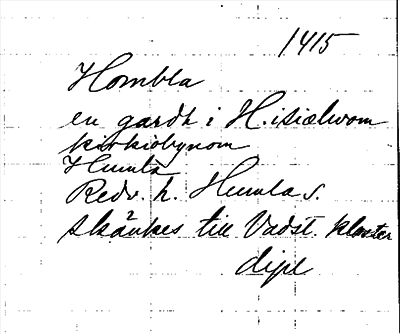 1415
Hombla
en gardh i H. isiælwom
kirkiobynom
Humla
Redv. h. Humla s.
skänkes till Vadst. kloster
dipl